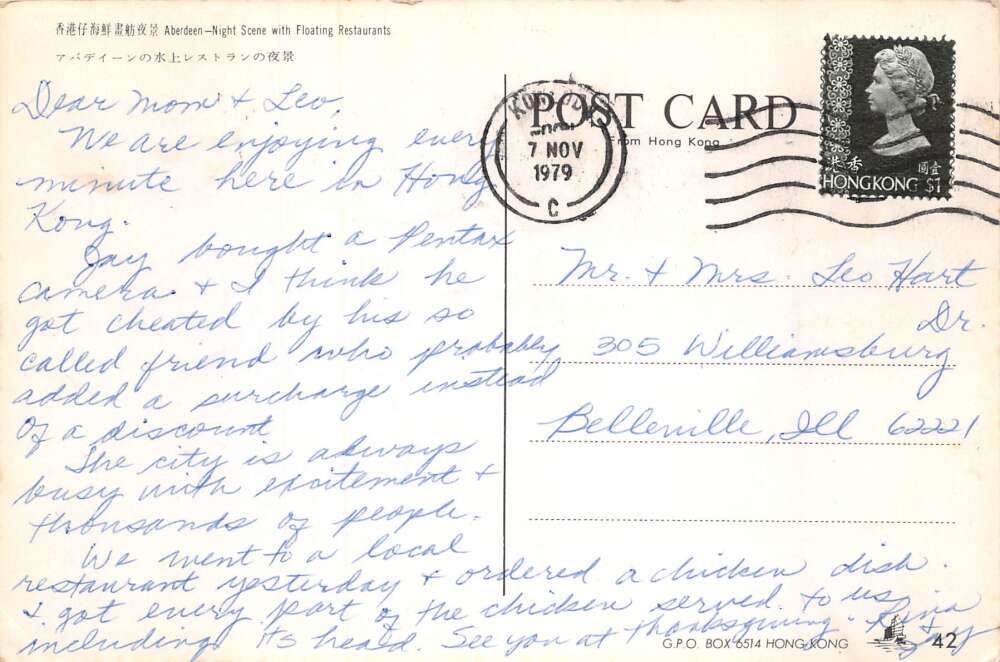 香港仔海鮮畫舫夜景 Aberdeen—Night Scene with Floating Restaurants
アバディーンの水上レストランの夜景
Dear Mom & Leo,
We are enjoying every
minute here in Hong
Kong.
Jay bought a Pentax
camera & I think he
got cheated by his so
called friend who probably
added a surcharge instead
of a discount
The city is always
busy with excitement &
thousands of people.
We went to a local
restaurant yesterday & ordered a chicken dish.
& got every part of the chicken served to us
including its head. See you at Thanksgiving
& Jay
POST CARD
From Hong Kong
KOWLOON
7 NOV
1979
C
香港
壹圓
HONG KONG $1
Mr. & Mrs. Leo Hart
Dr.
305 Williamsburg
Belleville, Ill 62221
G.P.O. BOX 6514 HONG KONG
42